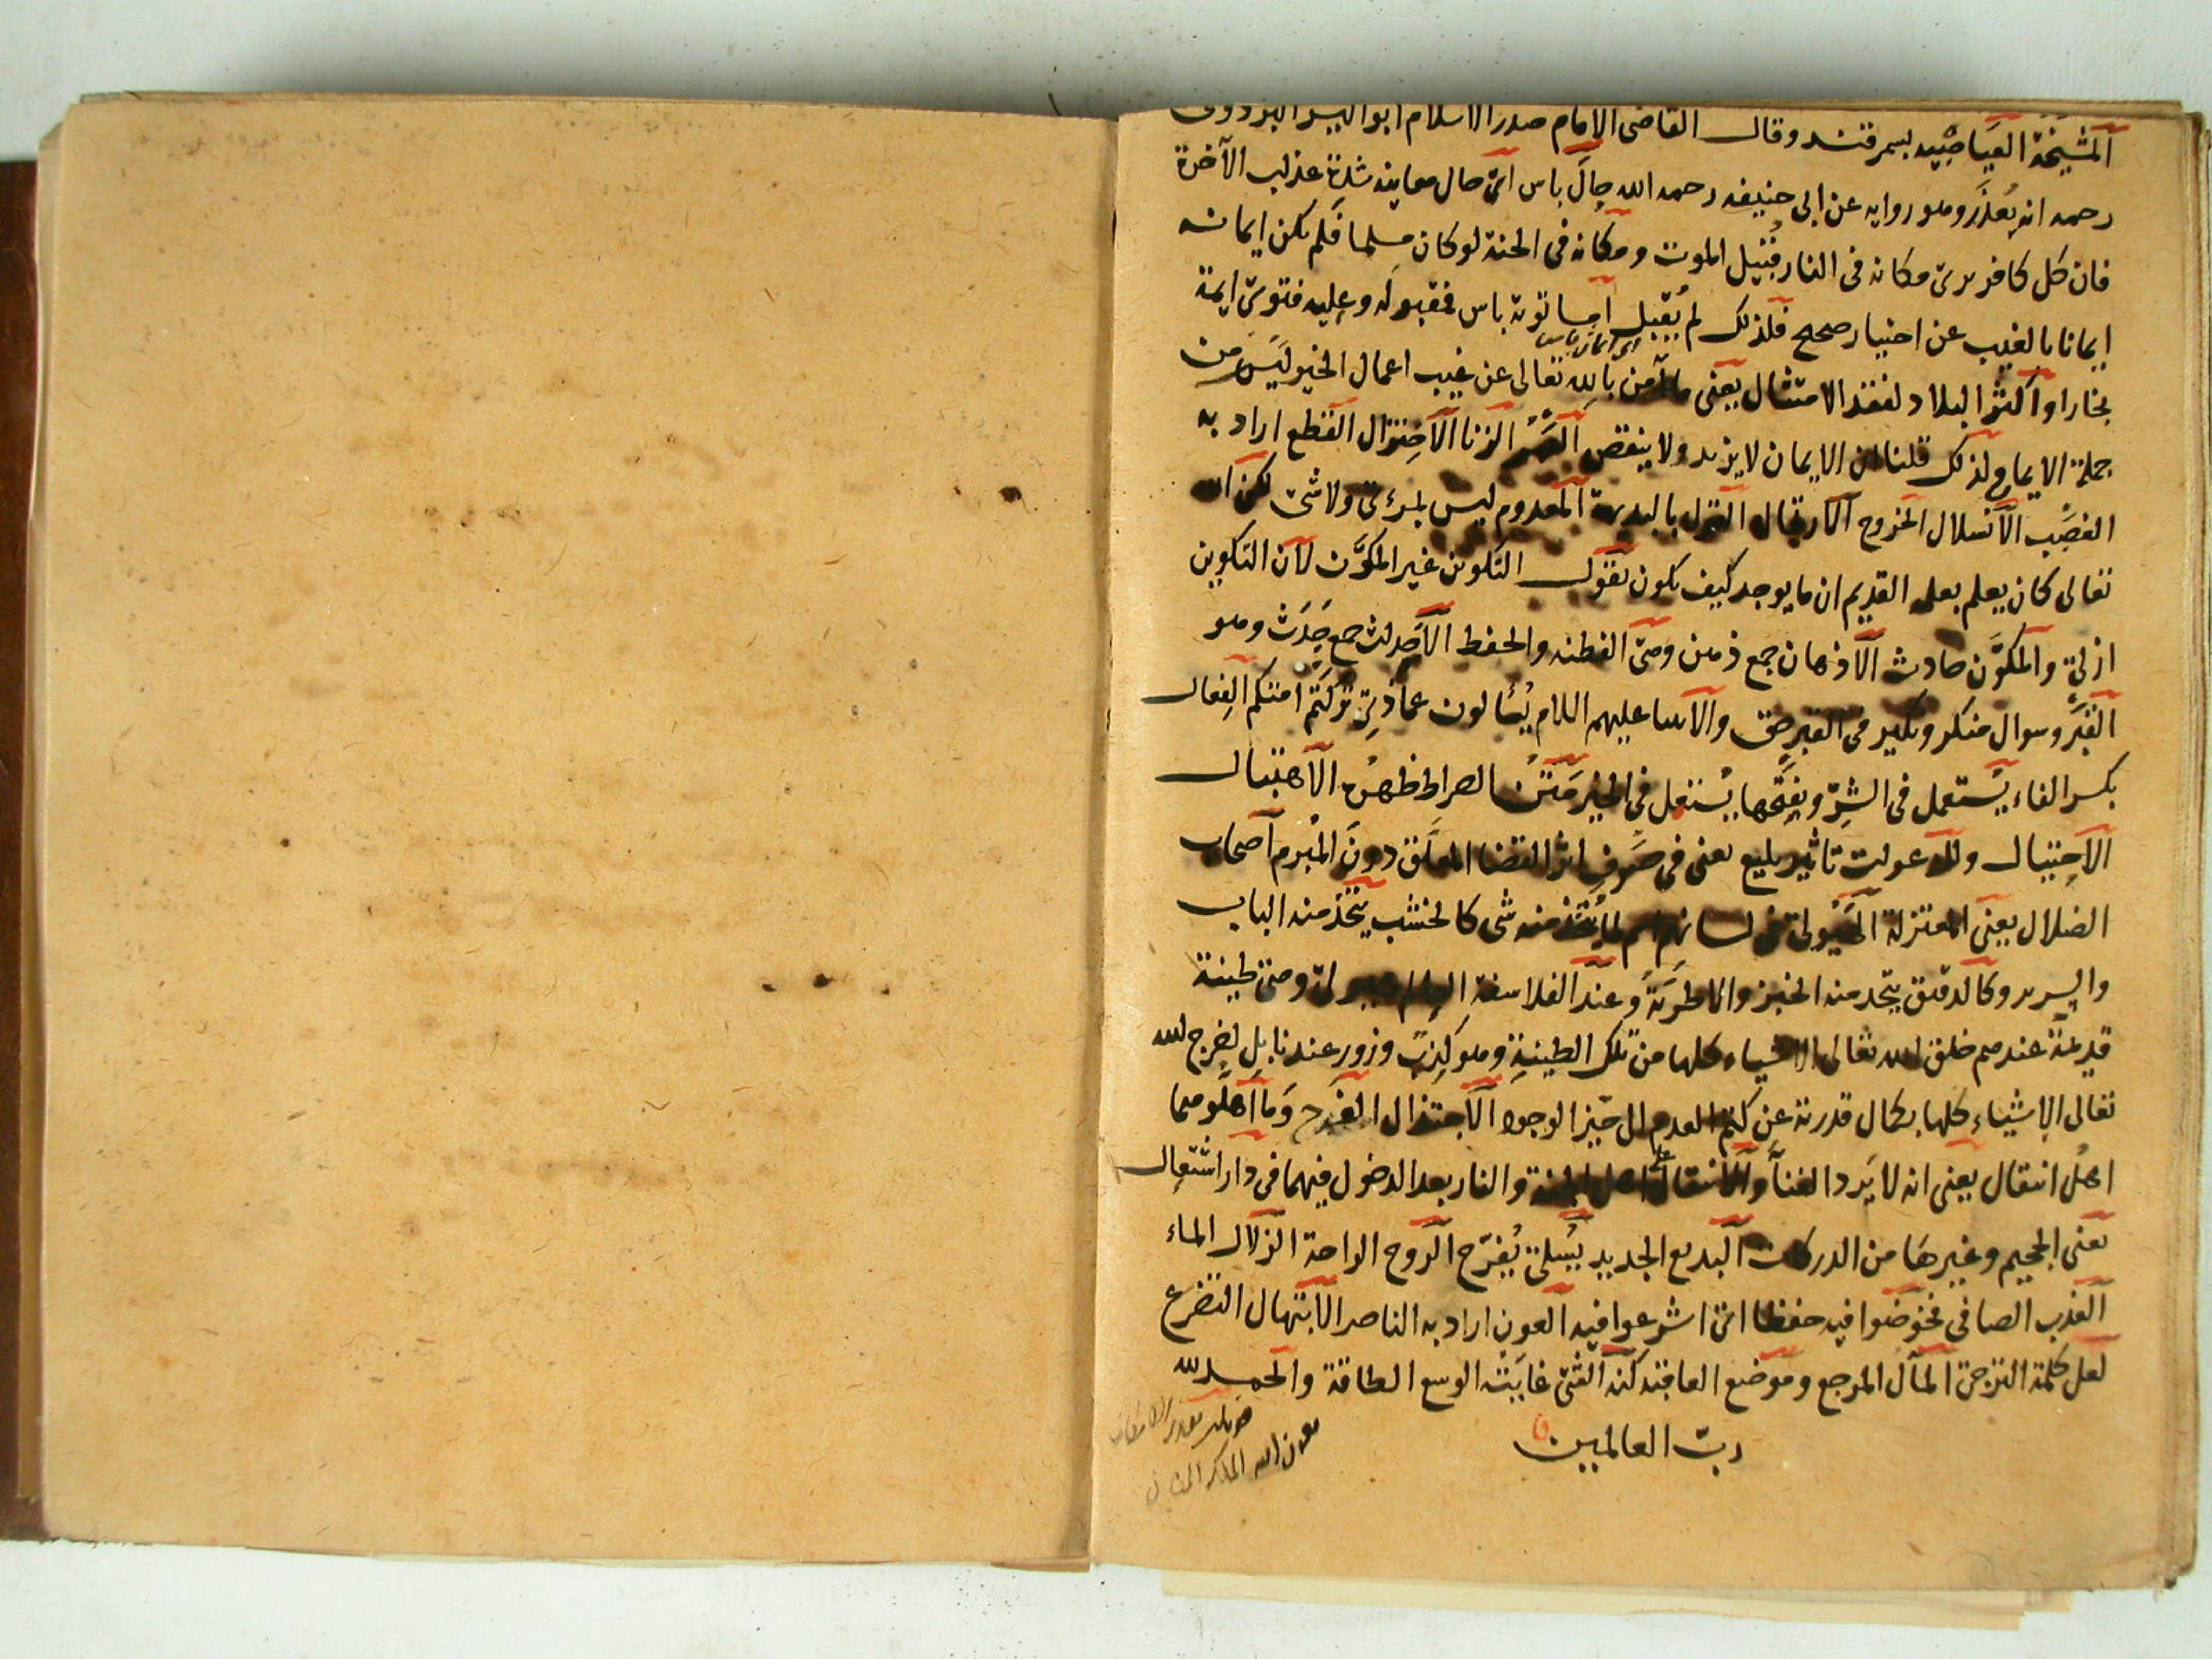 المشيخة العياضيه بسمرقند وقال القاضى الامام صدر الاسلام ابو اليسر البزدوى
رحمه انه يعذر وهو روايه عن ابى حنيفه رحمه الله حال باس اى حال معاينه شدة عذاب الآخرة
فان كل كافر يرى مكانه فى النار قبيل الموت ومكانه فى الجنة لو كان مسلما فلم يكن ايمانه
ايمانا بالغيب عن اختيار صحيح فلذلك لم يقبل اما توبة باس فمقبوله وعليه فتوى ايمة
اى ايمان باس
بخارا واكثر البلاد لفقد الامتثال يعنى ما آمن بالله تعالى عن غيب اعمال الخير ليس من
جملة الايمان ولذلك قلنا ان الايمان لا يزيد ولا ينقص العهر الزنا الاختزال القطع اراد به
الغصب الانسلال الخروج الارتجال القول بالبديهة المعدوم ليس بمرئى ولا شئ لكن الله
تعالى كان يعلم بعلمه القديم ان ما يوجد كيف يكون نقول التكوين غير المكوّن لان التكوين
ازلى والمكوّن حادث الاذهان جمع ذهن وهى الفطنه والحفظ الاجداث جمع جدث وهو
القبر وسوال منكر ونكير فى القبر حق والانبيا عليهم السلام يسألون عماذى تركتم امتكم الفعال
بكسر الفاء يستعمل فى الشر وبفتحها يستعمل فى الخير متن الصراط ظهره الاهتبال
الاحتيال وللدعوات تاثير بليغ يعنى فى صرف اثر القضا المعلق دون المبرم اصحاب
الضلال يعنى المعتزلة الهيولى فى لسانهم اسم لما يتخذ منه شى كالخشب يتخذ منه الباب
والسرير وكالدقيق يتخذ منه الخبز والاطرية وعند الفلاسفة العالم هيولى وهى طينة
قديمة عندهم خلق الله تعالى الاشياء كلها من تلك الطينة وهو كذب وزور عندنا بل اخرج الله
تعالى الاشياء كلها بكمال قدرته عن كتم العدم الى حيز الوجود الاجتذال الفرح وما اهلوهما
اهل انتقال يعنى انه لا يرد الفنا والانتقال على اهل الجنة والنار بعد الدخول فيهما فى دار اشتعال
يعنى الجحيم وغيرها من الدركات البديع الجديد يسلى يفرّح الروح الراحة الزلال الماء
العذب الصافى فخوضوا فيه حفظا اى اشرعوا فيه العون اراد به الناصر الابتهال التضرع
لعل كلمة الترجى المآل المرجع وموضع العاقبة كنه الشئ غايته الوسع الطاقة والحمد لله
ربّ العالمين
بعون الله الملك المنان